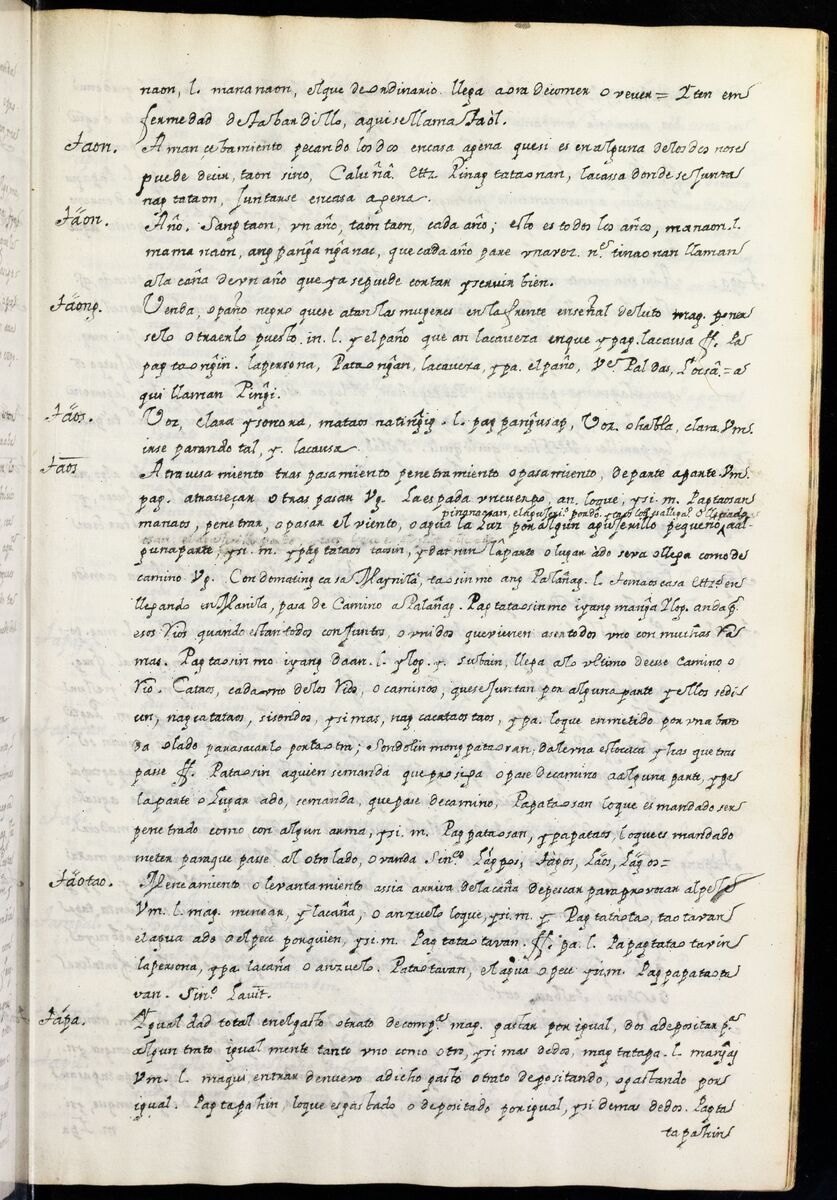 naon, l. mananaon, elque deordinario llega aora decomer o vever = Yten em
fermedad detabardillo, aquisellama Taòl.
Taon. Amançebamiento pecando losdos encasa agena quesi es enalguna delosdos nose
puede decir, taon sino, Caluña. ettz Pinag tataonan, lacassa donde sejunta
nag tataon, Juntarse encasa agena.
Tàon. Año. Sang taon, vn año, taon taon, cada año; esto es todos los años, manaon. l.
mamanaon, ang panganganac, que cada año pare vnavez. tinaonan llaman
ala caña devn año que ya sepuede cortar yservir bien.
Tàong. Venda, o paño negro quese atan las mugeres enla frente enseñal deluto mag. poner
selo o traerlo puesto. in. l. y elpaño que an lacaveza enque ypag. lacausa ff. Pa
pag taongin. lapersona, Pataongan, lacaveza, ypa. el paño, Paldas, = a
qui llaman Pingi.
Tàos. Voz, clara ysonora, mataos natingig. l. pag pangusap, Voz. o habla, clara. Vm.
irse parando tal, y. lacausa.
Tàos Atravesamiento traspasamiento penetramiento opasamiento, departe aparte. Vm.
pag. atraveçar otras pasar Vg. Laespada vncuerpo, an. loque, ysi. m. Pagtaosan
manaos, penetrar, o pasar el viento, o agua la Luz por algun agujerillo pequeño, aal-
gunaparte, ysi. m. y pag tataos taosin, y datnin laparte olugar ado sera ollega como de
camino Vg. Condomating casa Maynila, taosinmo ang Palañag. l. tomaos casa ettz en
llegando en Manila, pasa de Camino a Palañag. Pagtataosinmo iyang manga Ylog. anda
esos rios quando estan todos conjuntos, o vnidos quevienen aser todos vno con muchas Ra
mas. Pagtaosinmo iyang daan. l. ylog. y. subain, llega alo vltimo deese camino o
Rio. Cataos, cadavno delos Rios, o caminos, quesejuntan por alguna parte yellos sedi
cen, nagcatataos, sisondos, ysimas, nag cacataos taos, y pa. loque enmetido por vna ban
da o lado parasacarlo porotra; Sondolin mong pataosan, dalerna estocaca ylas que tras
passe ff. Pataosin aquien semanda que prosiga o pase decamino aalguna parte, ypa
laparte o Lugar ado, semanda, quepase decamino, Papataosan loque esmandado ser
penetrado como con algun arma, ysi. m. Pagpataosan, ypapataos, loque es mandado
meter paraque passe al otro lado, o vanda Sino. Làgpos, Tàpos, Làos, Làgos =
Tàotao. Meneamiento o levantamiento assia arriva dela caña depescar para provocar alpeze
Vm. l. mag. menear, y lacaña, o anzuelo loque, ysi. m. y Pagtataotao, taotavan
elagua ado o elpece porquien, ysi. m. Pagtatatavan. ff. pa. l. Papagtatatavin
lapersona, ypa. lacaña o anzuelo. Pataotavan, elagua o pece ysim. Pagpapatata
van. Sino. Lauit.
Tàpa. Ygualdad total enelgasto otrato decompa. mag. gastar por igual, dos adepositar pa.
algun trato igual mente tanto vno como otro, ysi mas dedos, magtatapa. l.
Vm. l. magui entrar denuevo adicho gasto otrato depositando, ogastando por
igual. Pagtapahin, loque esgastado o depositado por igual, ysi demas dedos. Pagta
tapahin